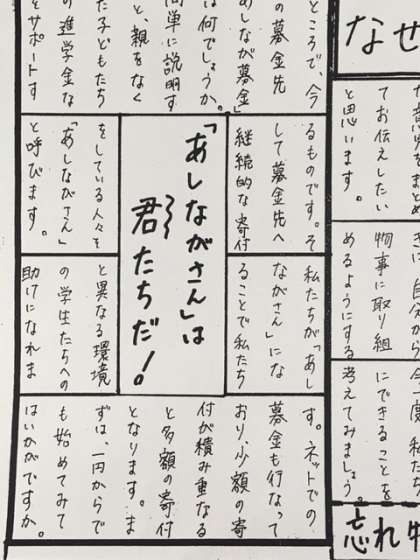 なぜ
てお伝えしたい
と思います。
きに、自分から
物事に取り組
めるようにする
今一度、私たち
にできることを
考えてみましょう。
忘れ物
ところで、今
の募金先
あしなが募金」
は何でしょうか。
簡単に説明す
と、親をなく
た子どもたち
の進学金な
をサポートす
るものです。そ
して募金先へ
継続的な寄付
「あしながさん」は
君たちだ!
をしている人々を
「あしながさん」
と呼びます。
私たちが「あし
ながさん」にな
ることで私たち
と異なる環境
の学生たちへの
助けになれま
す。ネットでの
募金も行なって
おり、少額の寄
付が積み重なる
と多額の寄付
となります。ま
ずは、一円からで
も始めてみて
はいかがですか。